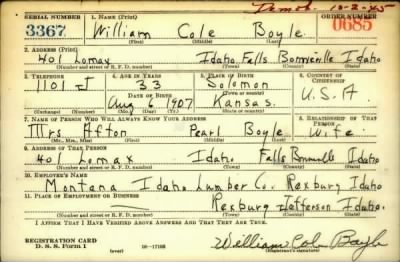 Demob. 10-2-45
SERIAL NUMBER 1. NAME (Print) ORDER NUMBER
3367 William Cole Boyle 0685
(First) (Middle) (Last)
2. ADDRESS (Print)
401 Lomax Idaho Falls Bonneville Idaho
(Number and street or R. F. D. number) (Town) (County) (State)
3. TELEPHONE 4. AGE IN YEARS 5. PLACE OF BIRTH 6. COUNTRY OF CITIZENSHIP
1101 J 33 Solomon
DATE OF BIRTH (Town or county)
Aug 6 1907 Kansas. U.S.A
(Exchange) (Number) (Mo.) (Day) (Yr.) (State or country)
7. NAME OF PERSON WHO WILL ALWAYS KNOW YOUR ADDRESS 8. RELATIONSHIP OF THAT PERSON
Mrs Afton Pearl Boyle Wife.
(Mr., Mrs., Miss) (First) (Middle) (Last)
9. ADDRESS OF THAT PERSON
401 Lomax Idaho Falls Bonneville Idaho
(Number and street or R. F. D. number) (Town) (County) (State)
10. EMPLOYER'S NAME
Montana Idaho Lumber Co. Rexburg Idaho
11. PLACE OF EMPLOYMENT OR BUSINESS
Rexburg Jefferson Idaho.
(Number and street or R. F. D. number) (Town) (County) (State)
I AFFIRM THAT I HAVE VERIFIED ABOVE ANSWERS AND THAT THEY ARE TRUE.
REGISTRATION CARD
D. S. S. Form 1 (over) 16-17105 William Cole Boyle
(Registrant's signature)